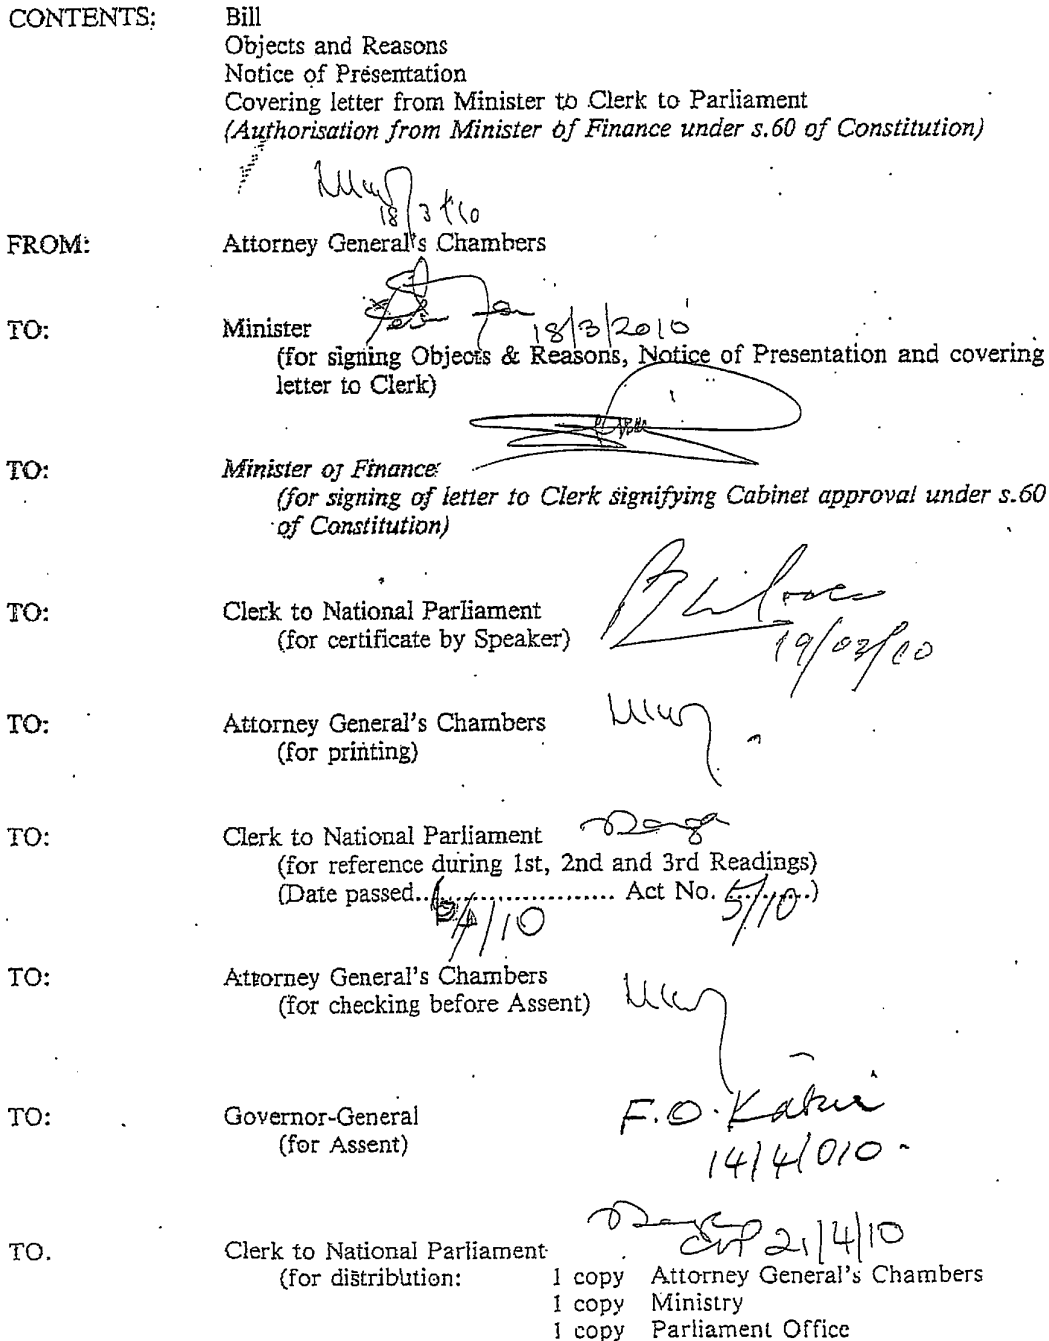 CONTENTS: Bill
Objects and Reasons
Notice of Presentation
Covering letter from Minister to Clerk to Parliament
(Authorisation from Minister of Finance under s.60 of Constitution)
18/3/10
FROM: Attorney General's Chambers
TO: Minister 18/3/2010
(for signing Objects & Reasons, Notice of Presentation and covering
letter to Clerk)
TO: Minister of Finance
(for signing of letter to Clerk signifying Cabinet approval under s.60
of Constitution)
TO: Clerk to National Parliament
(for certificate by Speaker) 19/03/10
TO: Attorney General's Chambers
(for printing)
TO: Clerk to National Parliament
(for reference during 1st, 2nd and 3rd Readings)
(Date passed........................ Act No. 5/10)
/4/10
TO: Attorney General's Chambers
(for checking before Assent)
TO: Governor-General F.O. Kabui
(for Assent) 14/4/010
TO. Clerk to National Parliament 21/4/10
(for distribution: 1 copy Attorney General's Chambers
1 copy Ministry
1 copy Parliament Office